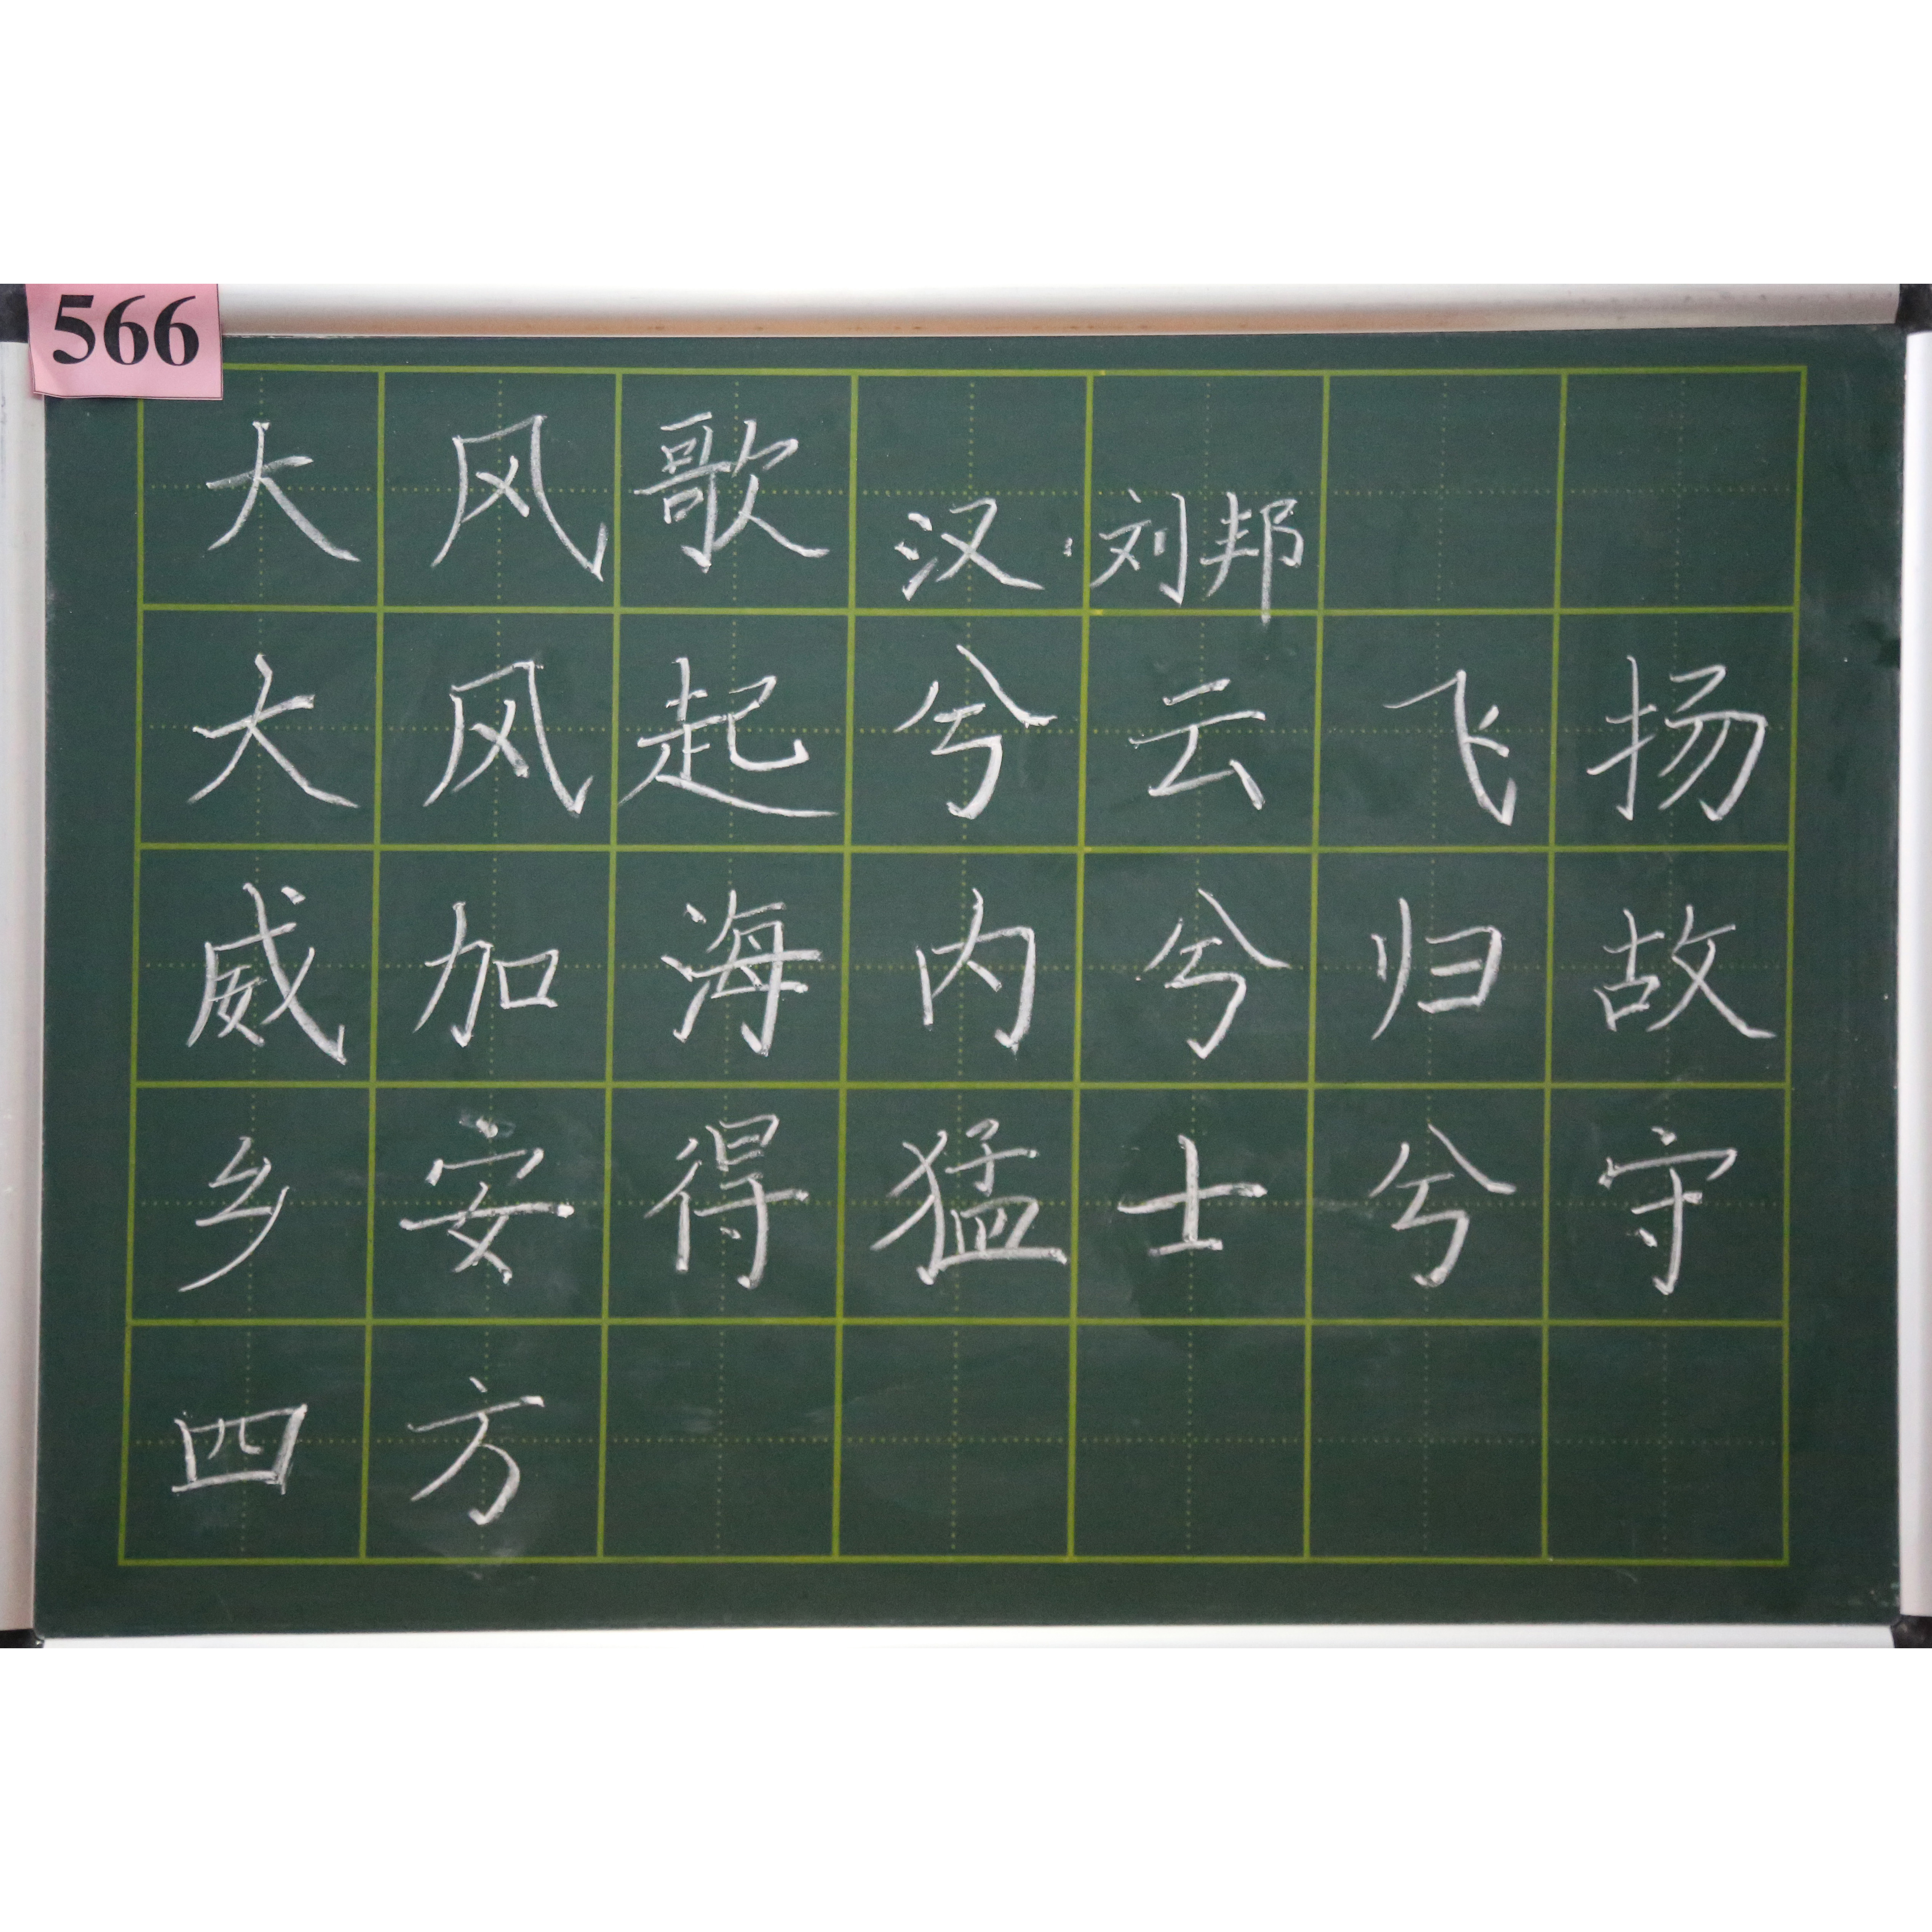 566
大风歌 汉·刘邦
大风起兮云飞扬
威加海内兮归故
乡安得猛士兮守
四方